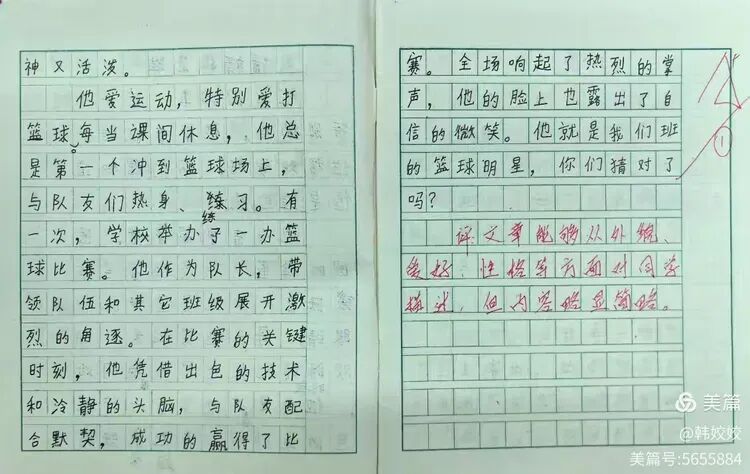 神又活泼。
他爱运动，特别爱打
篮球。每当课间休息，他总
是第一个冲到篮球场上，
与队友们热身、练习。有
练
一次，学校举办了一办篮
球比赛。他作为队长，带
领队伍和其它班级展开激
烈的角逐。在比赛的关键
时刻，他凭借出包的技术
和冷静的头脑，与队友配
合默契，成功的赢得了比
赛。全场响起了热烈的掌
声，他的脸上也露出了自
信的微笑。他就是我们班
的篮球明星，你们猜对了
吗？
①
评：文章能够从外貌、
爱好、性格等方面对同学
描述，但内容略显简略。
美篇
@韩姣姣
美篇号:5655884